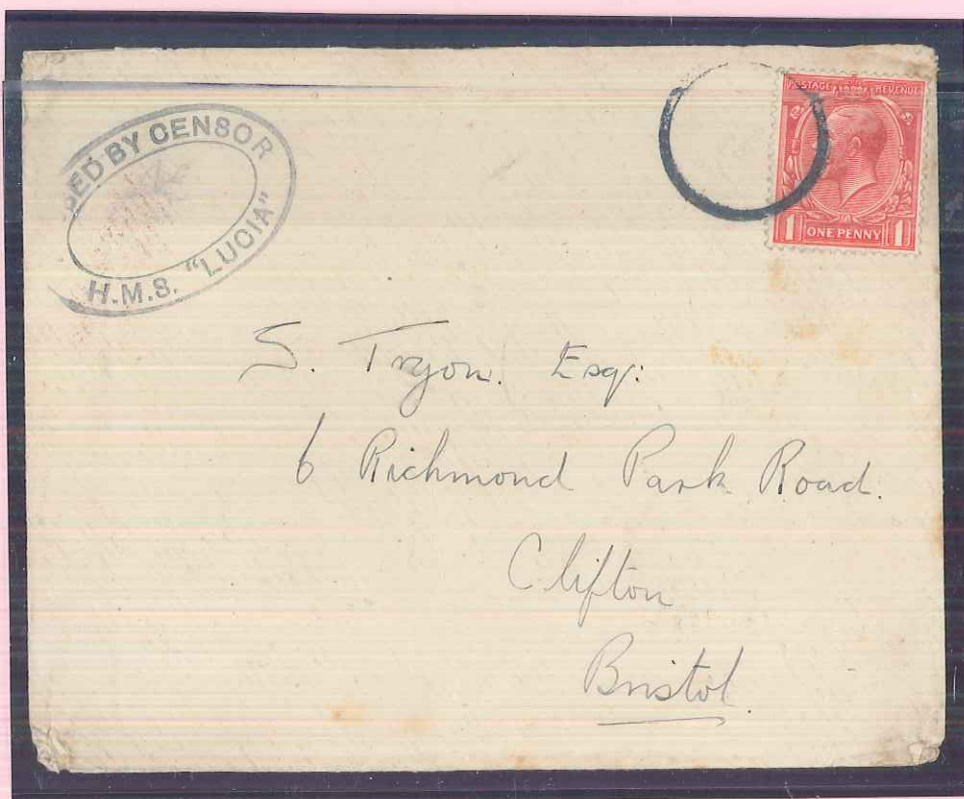 SED BY CENSOR
H.M.S. "LUCIA"
POSTAGE REVENUE
1 ONE PENNY 1
S. Tryon. Esq:
6 Richmond Park Road.
Clifton
Bristol.